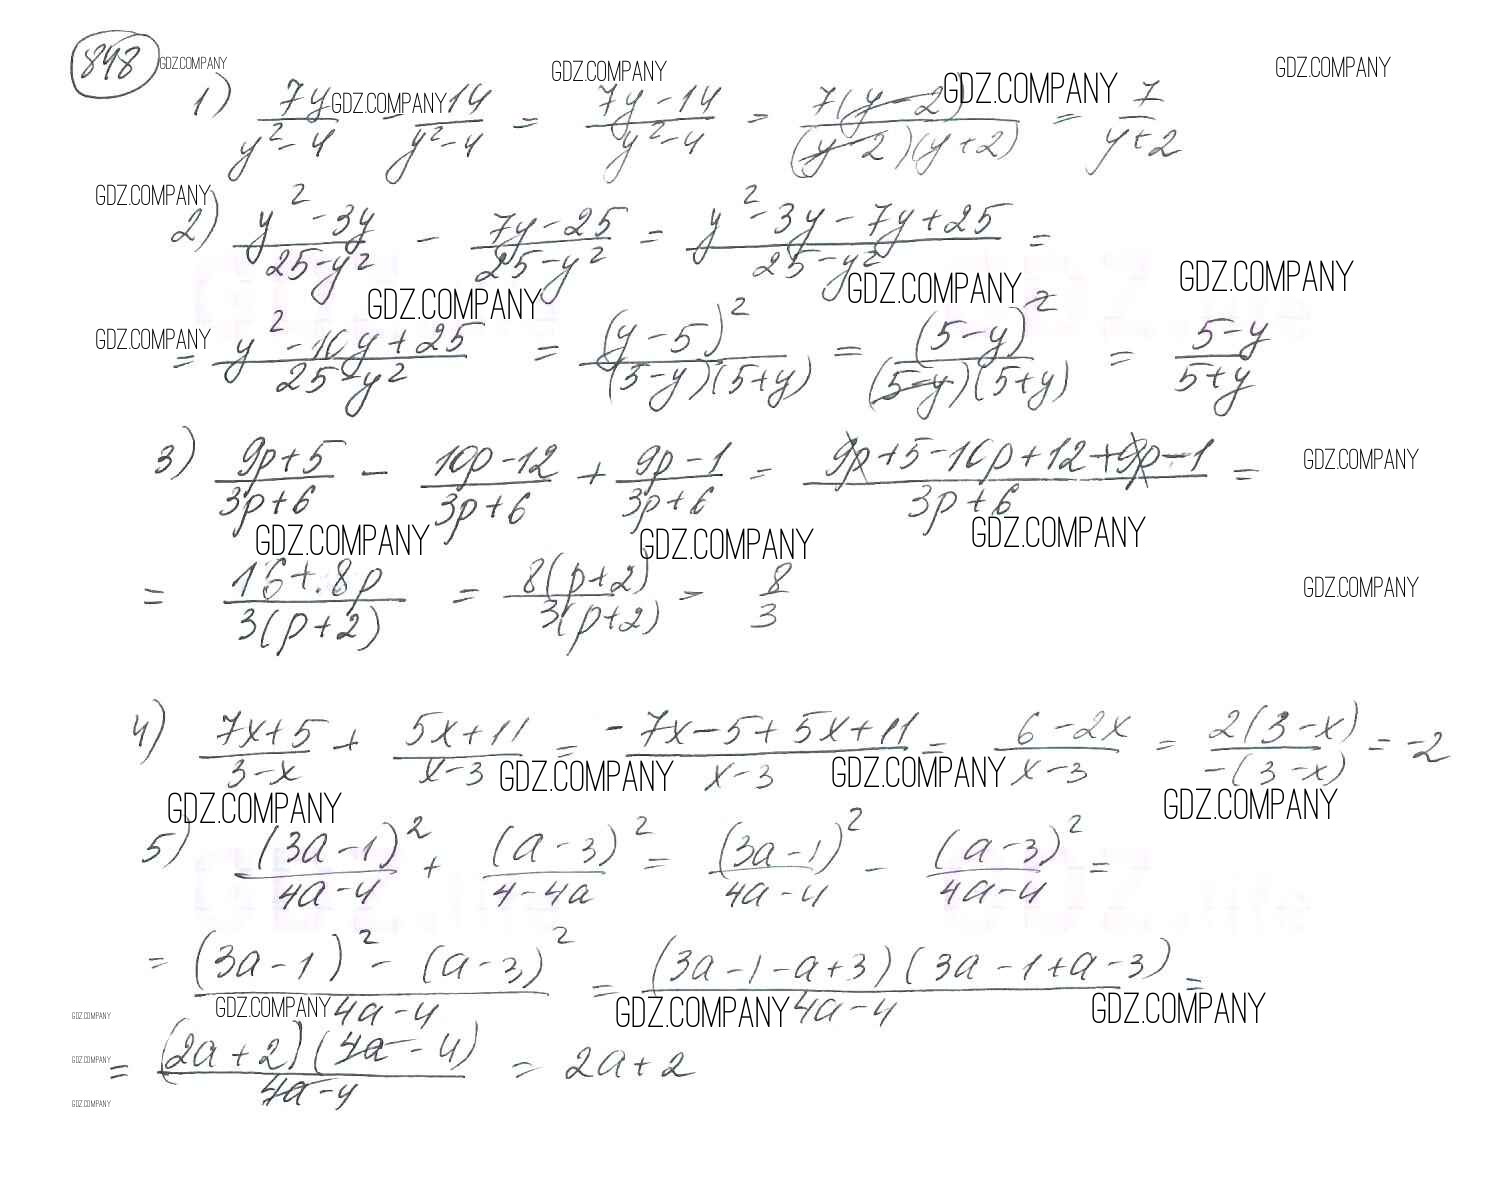 848 GDZ.COMPANY GDZ.COMPANY GDZ.COMPANY
1) 7y/(y²-4) - 14/(y²-4) = (7y-14)/(y²-4) = 7(y-2)/((y-2)(y+2)) = 7/(y+2)
GDZ.COMPANY GDZ.COMPANY
GDZ.COMPANY
2) (y²-3y)/(25-y²) - (7y-25)/(25-y²) = (y²-3y-7y+25)/(25-y²) =
GDZ.COMPANY GDZ.COMPANY GDZ.COMPANY
GDZ.COMPANY
= (y²-10y+25)/(25-y²) = (y-5)²/((5-y)(5+y)) = (5-y)²/((5-y)(5+y)) = (5-y)/(5+y)
3) (9p+5)/(3p+6) - (10p-12)/(3p+6) + (9p-1)/(3p+6) = (9p+5-10p+12+9p-1)/(3p+6) =
GDZ.COMPANY
GDZ.COMPANY GDZ.COMPANY GDZ.COMPANY
= (16+8p)/(3(p+2)) = 8(p+2)/(3(p+2)) = 8/3
GDZ.COMPANY
4) (7x+5)/(3-x) + (5x+11)/(x-3) = (-7x-5+5x+11)/(x-3) = (6-2x)/(x-3) = 2(3-x)/(-(3-x)) = -2
GDZ.COMPANY GDZ.COMPANY
GDZ.COMPANY GDZ.COMPANY
5) (3a-1)²/(4a-4) + (a-3)²/(4-4a) = (3a-1)²/(4a-4) - (a-3)²/(4a-4) =
= ((3a-1)²-(a-3)²)/(4a-4) = (3a-1-a+3)(3a-1+a-3)/(4a-4) =
GDZ.COMPANY GDZ.COMPANY GDZ.COMPANY
GDZ.COMPANY
= (2a+2)(4a-4)/(4a-4) = 2a+2
GDZ.COMPANY
GDZ.COMPANY